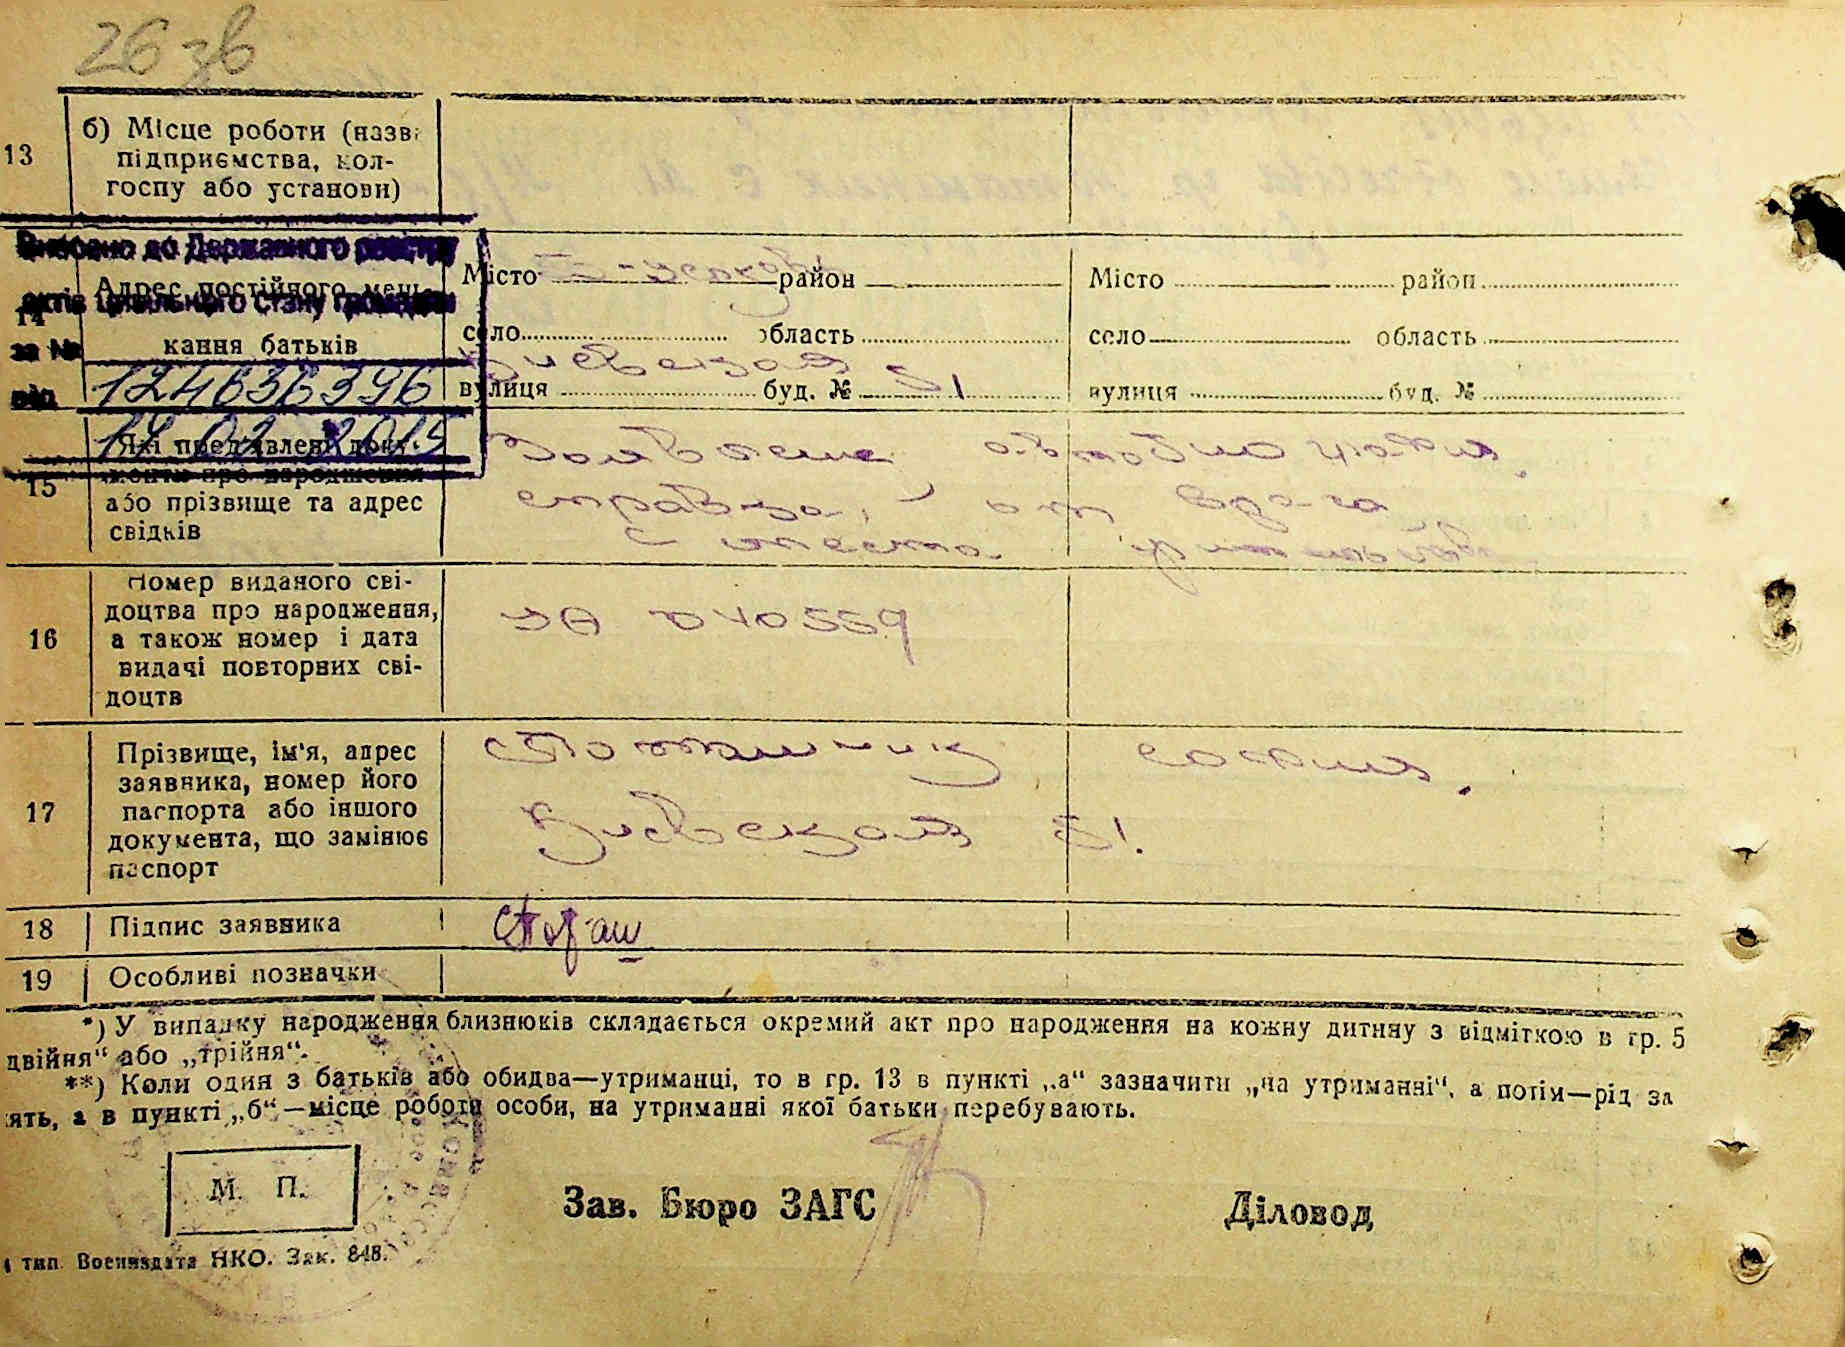 26 зв
13
б) Місце роботи (назва
підприємства, кол-
госпу або установи)
Внесено до Державного реєстру
актів цивільного стану громадян
за №
124636396
від
17.02.2015
14
Адрес постійного меш-
кання батьків
Місто район
село область
вулиця Киевская буд. № 51
Місто район
село область
вулиця буд. №
15
Які пред'явлені доку-
менти про народження
або прізвище та адрес
свідків
справка, от врача
16
Номер виданого сві-
доцтва про народження,
а також номер і дата
видачі повторних сві-
доцтв
040559
17
Прізвище, ім'я, адрес
заявника, номер його
паспорта або іншого
документа, що замінює
паспорт
София.
Киевская 51.
18 Підпис заявника
19 Особливі позначки
*) У випадку народження близнюків складається окремий акт про народження на кожну дитину з відміткою в гр. 5
двійня“ або „трійня“.
**) Коли один з батьків або обидва—утриманці, то в гр. 13 в пункті „а“ зазначити „на утриманні“, а потім—рід за
ять, а в пункті „б“—місце роботи особи, на утриманні якої батьки перебувають.
М. П.
Зав. Бюро ЗАГС Діловод
тип. Воениздата НКО. Зак. 848.